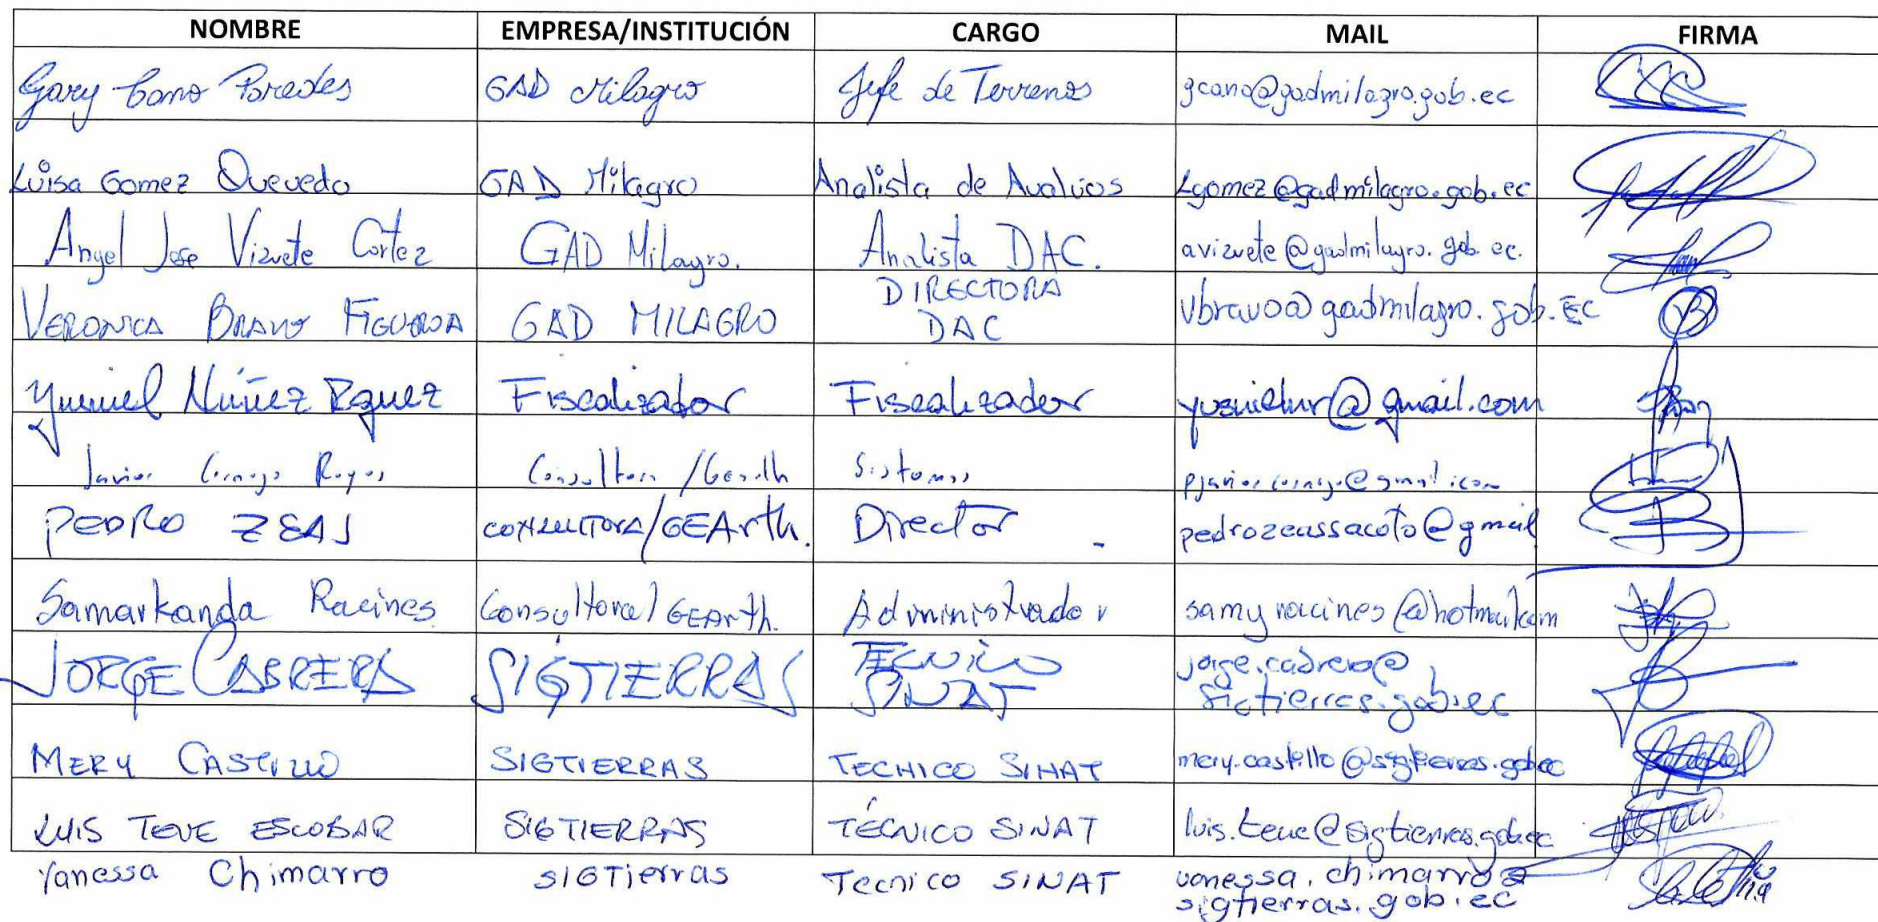 NOMBRE EMPRESA/INSTITUCIÓN CARGO MAIL FIRMA
Gary Cano Paredes GAD Milagro Jefe de Terrenos gcano@gadmilagro.gob.ec
Luisa Gomez Quevedo GAD Milagro Analista de Avalúos Lgomez@gadmilagro.gob.ec
Angel Jose Vizuete Cortez GAD Milagro. Analista DAC. avizuete@gadmilagro.gob.ec.
VERONICA BRAVO FIGUEROA GAD MILAGRO DIRECTORA DAC vbravo@gadmilagro.gob.EC
Núñez Rguez Fiscalizador Fiscalizador
Javier Rojas Consultora/Gearth Sistemas
PEDRO ZEAS CONSULTORA/GEArth. Director - pedrozeassacoto@gmail
Samarkanda Racines Consultora/GEArth. Administrador samyracines@hotmail.com
JORGE CABRERA SIGTIERRAS TECNICO SINAT jorge.cabrera@
sigtierras.gob.ec
MERY CASTILLO SIGTIERRAS TECNICO SINAT mery.castillo@sigtierras.gob.ec
LUIS TENE ESCOBAR SIGTIERRAS TÉCNICO SINAT luis.tene@sigtierras.gob.ec
Vanessa Chimarro SIGTierras Tecnico SINAT vanessa.chimarro@
sigtierras.gob.ec